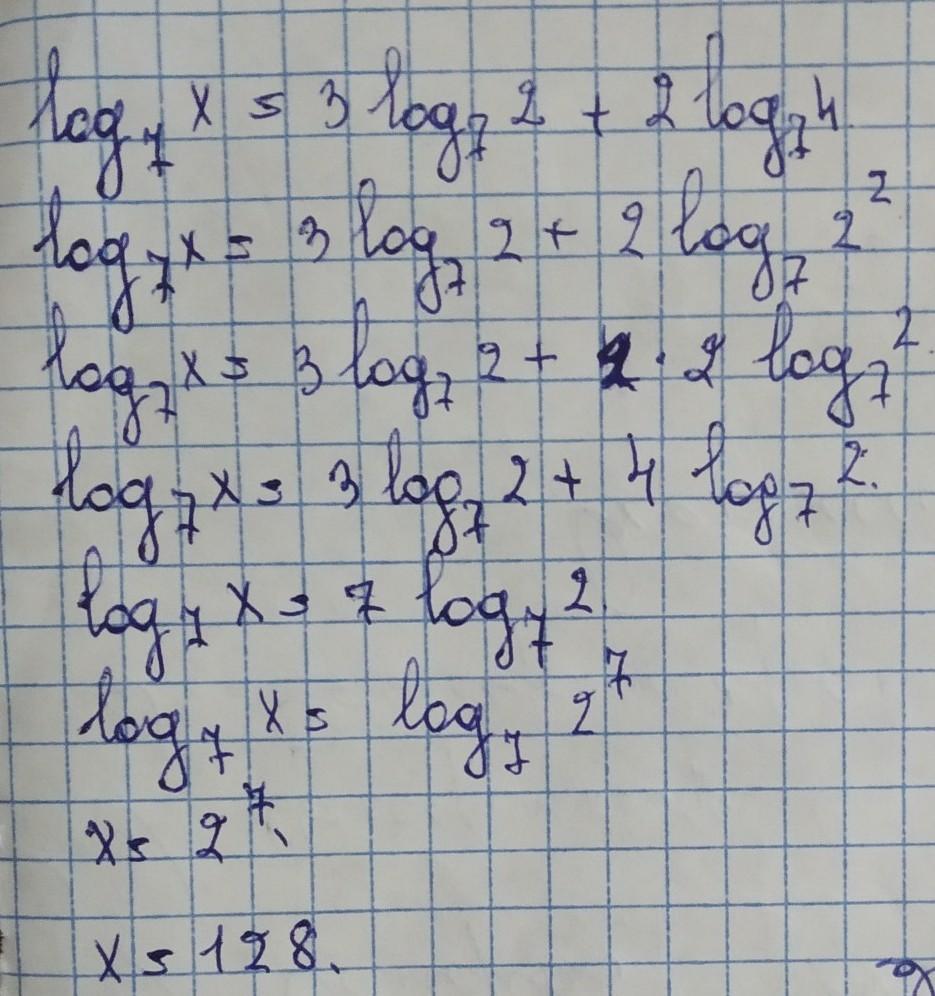 log₇ x = 3 log₇ 2 + 2 log₇ 4
log₇ x = 3 log₇ 2 + 2 log₇ 2²
log₇ x = 3 log₇ 2 + 2 · 2 log₇ 2.
log₇ x = 3 log₇ 2 + 4 log₇ 2.
log₇ x = 7 log₇ 2
log₇ x = log₇ 2⁷
x = 2⁷.
x = 128.